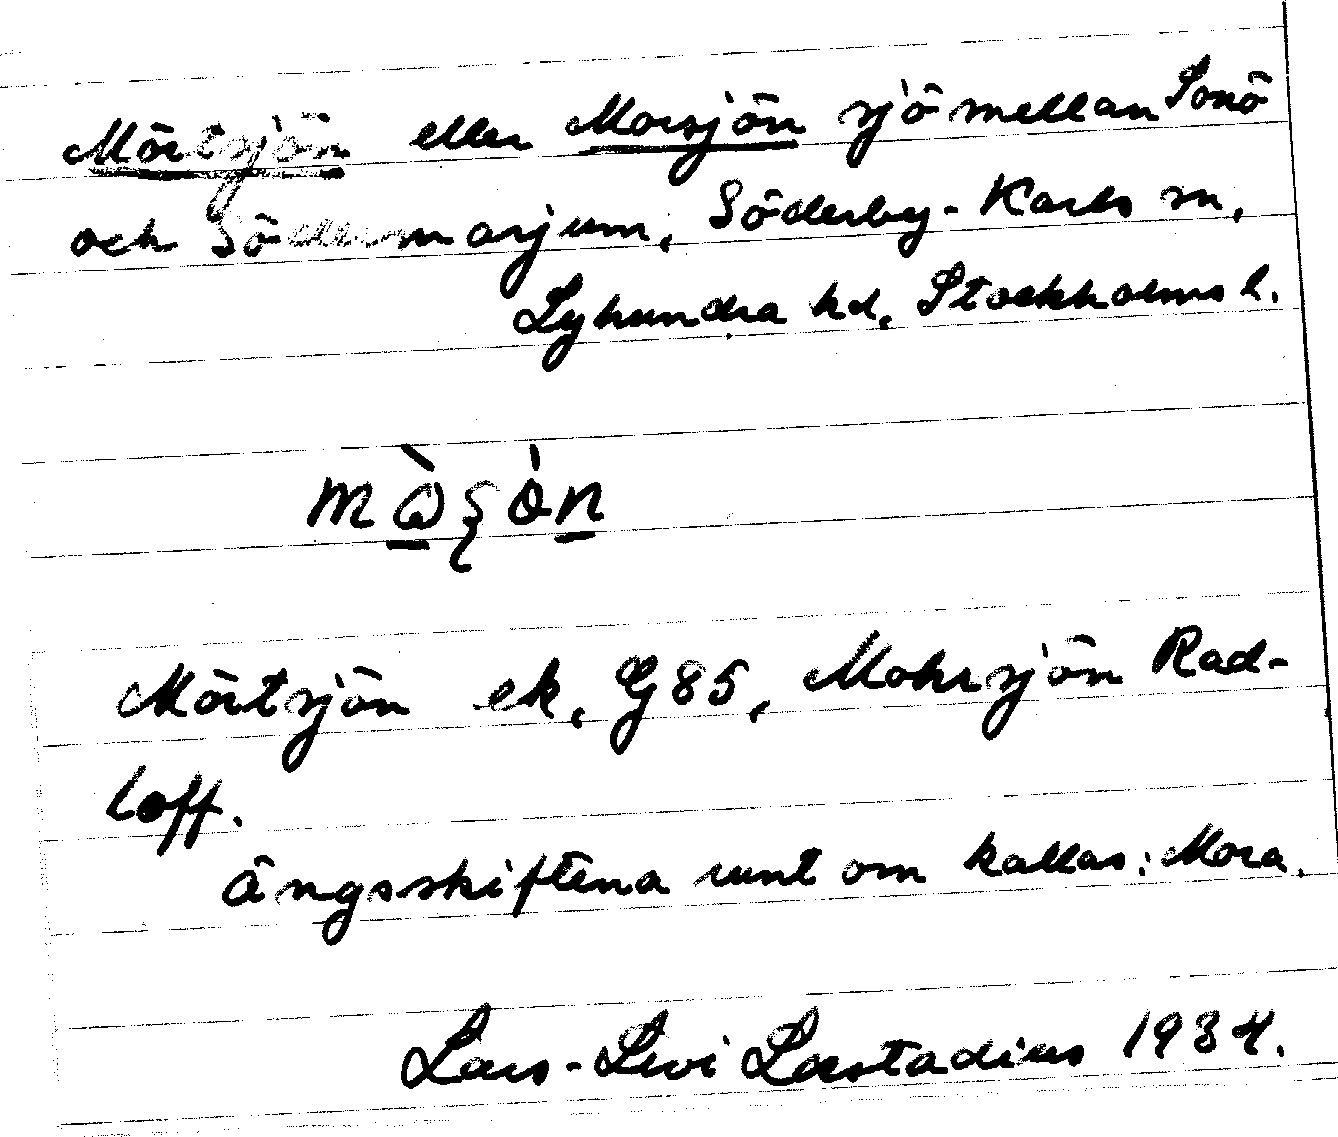 Mörtsjön eller Morsjön sjö mellan Sonö
och Södermarjum, Söderby-Karls sn,
Lyhundra hd, Stockholms l.
Mörtsjön ek, G85, Mohrsjön Rad-
loff.
Ängsskiftena runt om kallas: Mora.
Lars-Levi Læstadius 1934.